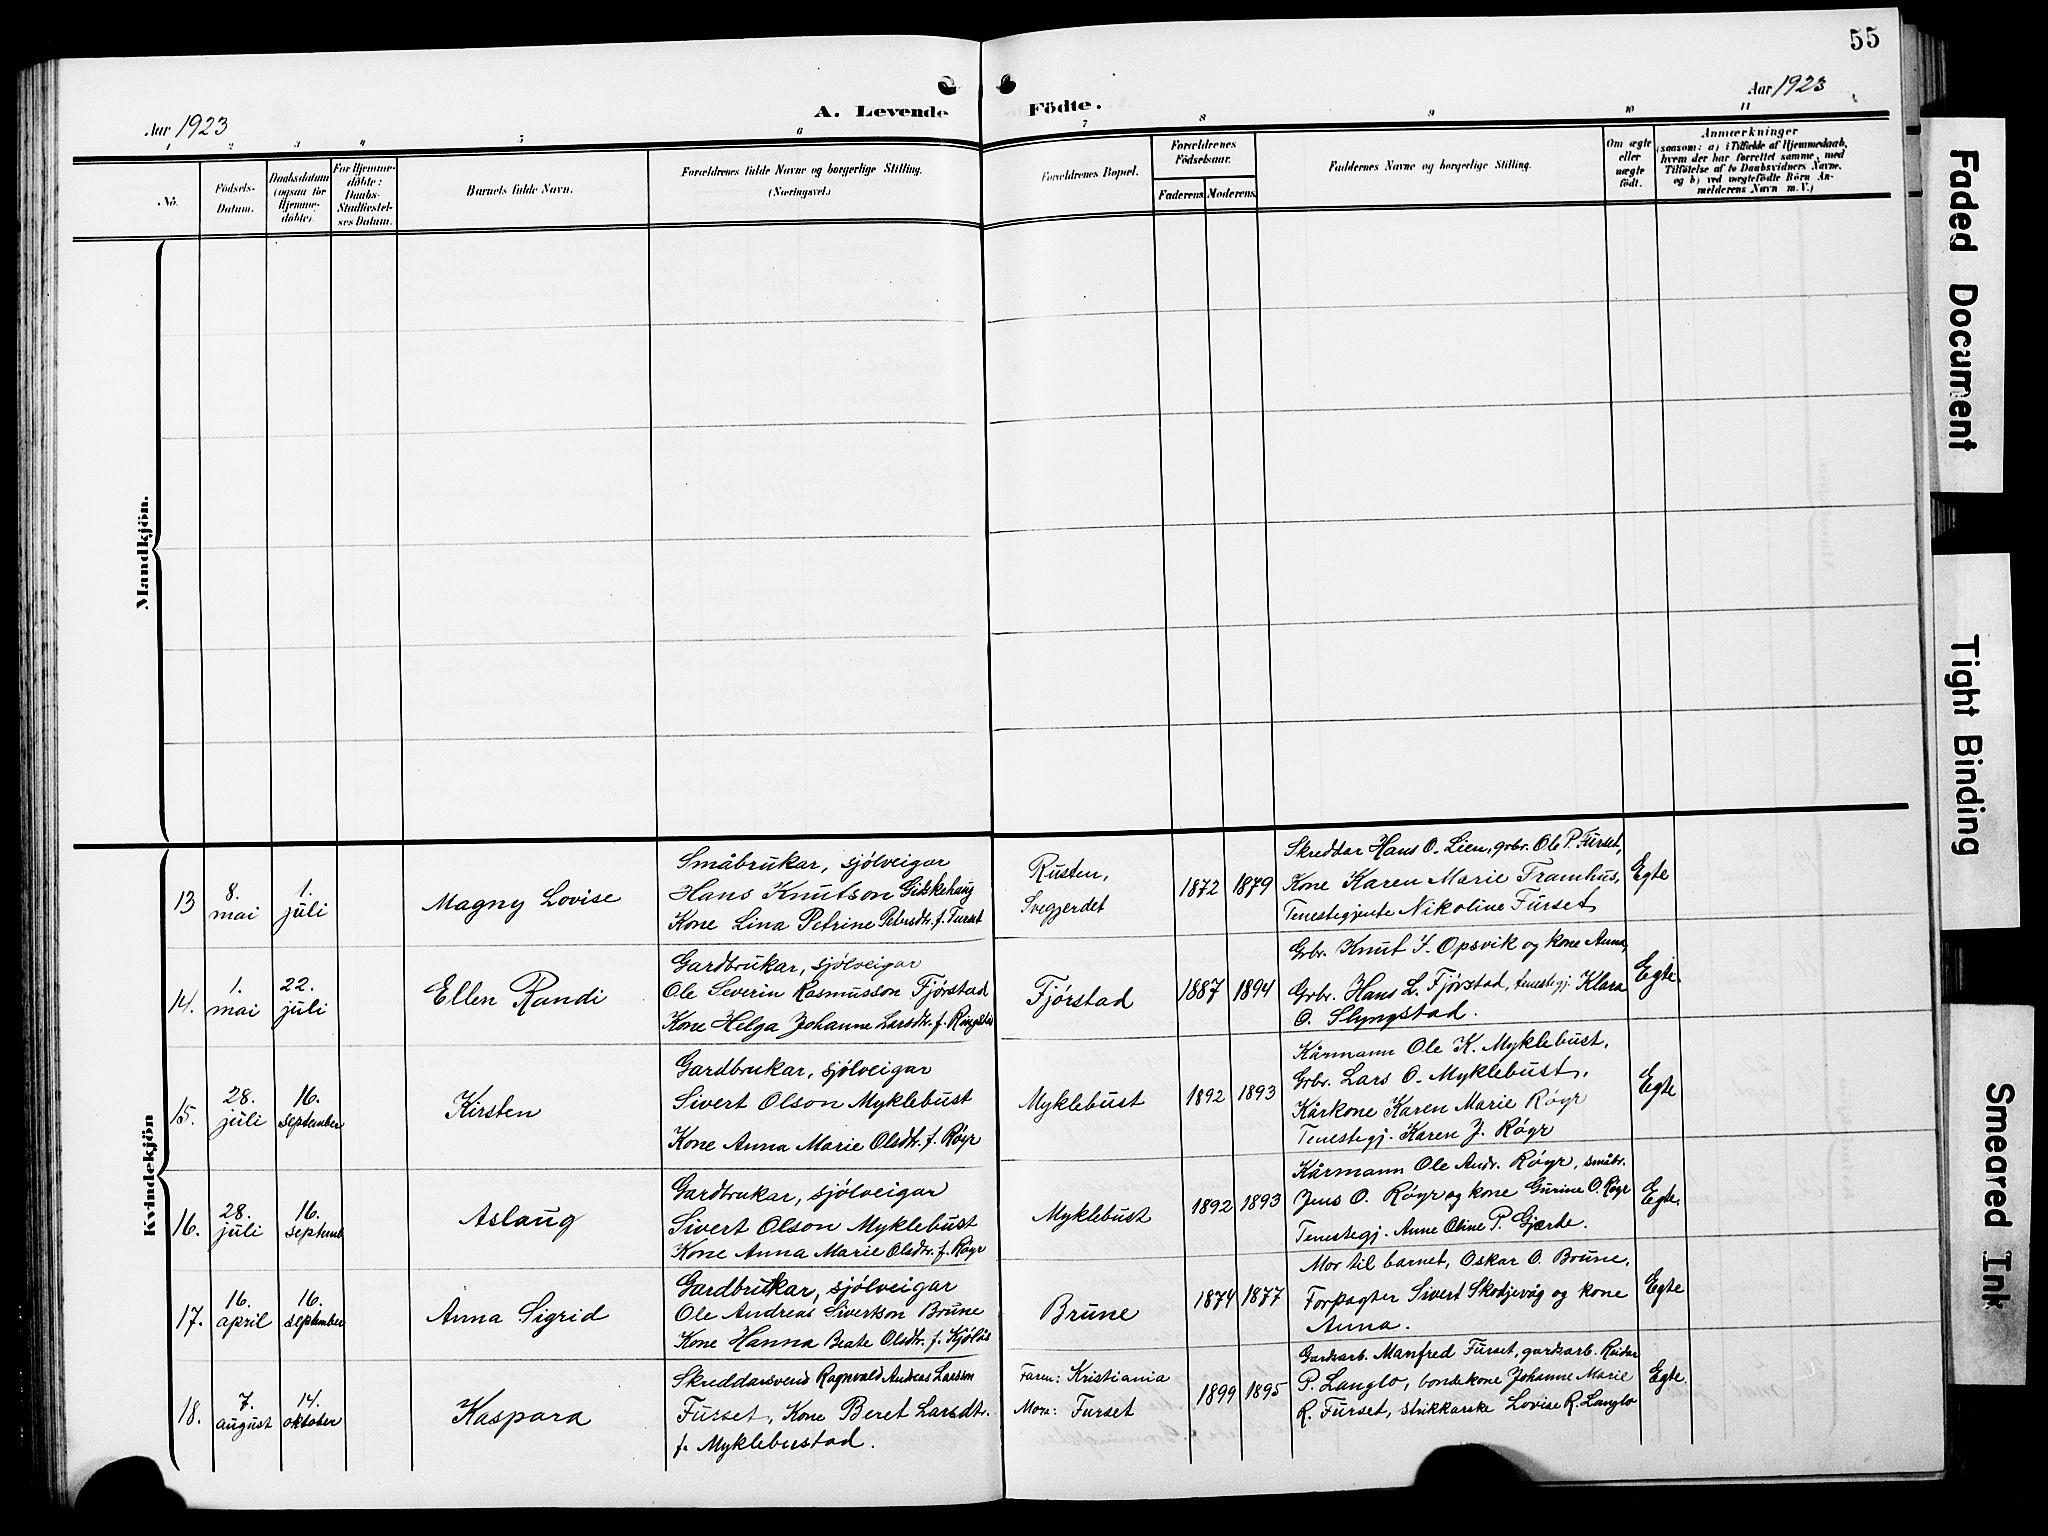 55
Aar 1923
A. Levende Födte.
Aar 1923
1 2 3 4 5 6 7 8 9 10 11
No.
Födsels-
Datum.
Daabsdatum
(ogsaa for
Hjemme-
döbte).
For Hjemme-
döbte:
Daabs-
Stadfæstel-
ses Datum.
Barnets fulde Navn.
Forældrenes fulde Navne og borgerlige Stilling.
(Næringsvei.)
Forældrenes Bopæl.
Forældrenes
Födselsaar.
Faderens. Moderens.
Faddernes Navne og borgerlige Stilling.
Om ægte
eller
uægte
født.
Anmærkninger
(saasom: a) i Tilfælde af Hjemmedaab,
hvem der har forrettet samme, med
Tilföielse af to Daabsvidners Navne.
og b) ved uægtefödte Börn An-
melderens Navn m. V.)
Mandkjön.
Kvindekjön
13
8.
mai
1.
juli
Magny Lovise
Småbrukar, sjölveigar
Hans Knutson Giskehaug
Kone Lina Petrine Petersdtr. f. Furset
Rusten,
Svegjerdet
1872
1879
Skreddar Hans O. Lien, grbr. Ole P. Furset,
Kone Karen Marie Framhus,
Tenestegjente Nikoline Furset
Egte
14.
1.
mai
22.
juli
Ellen Randi
Gardbrukar, sjölveigar
Ole Severin Rasmusson Fjörstad
Kone Helga Johanne Larsdtr. f. Ringstad
Fjörstad
1887
1894
Grbr. Knut I. Opsvik og kone Anna,
Grbr. Hans L. Fjörstad, tenestegj. Klara
O. Slyngstad.
Egte.
15.
28.
juli
16.
september
Kirsten
Gardbrukar, sjölveigar
Sivert Olson Myklebust
Kone Anna Marie Olsdtr. f. Röyr
Myklebust
1892
1893
Kårmann Ole K. Myklebust,
Grbr. Lars O. Myklebust,
Kårkone Karen Marie Röyr
Tenestegj. Karen J. Röyr
Egte
16.
28.
juli
16.
septemb
Aslaug
Gardbrukar, sjölveigar
Sivert Olson Myklebust
Kone Anna Marie Olsdtr. f. Röyr
Myklebust
1892
1893
Kårmann Ole Andr. Röyr, småbr.
Jens O. Röyr og kone Gurine O. Röyr
Tenestegj. Anne Oline P. Gjærde.
Egte.
17.
16.
april
16.
september
Anna Sigrid
Gardbrukar, sjölveigar
Ole Andreas Sivertson Brune
Kone Hanna Beate Olsdtr. f. Kjölås
Brune
1874
1877
Mor til barnet, Oskar O. Brune,
Forpagter Sivert Skodjevåg og kone
Anna.
Egte
18.
7.
august
14.
oktober
Kaspara
Skreddarsvend Ragnvald Andreas Larsson
Furset, Kone Beret Larsdtr.
f. Myklebustad.
Faren: Kristiania
Mora: Furset
1899
1895
Gardsarb. Manfred Furset, gardsarb. Reidar
P. Langlo, bondekone Johanne Marie
R. Furset, strikkarske Lovise R. Langlo
Egte
Faded Document
Tight Binding
Smeared Ink